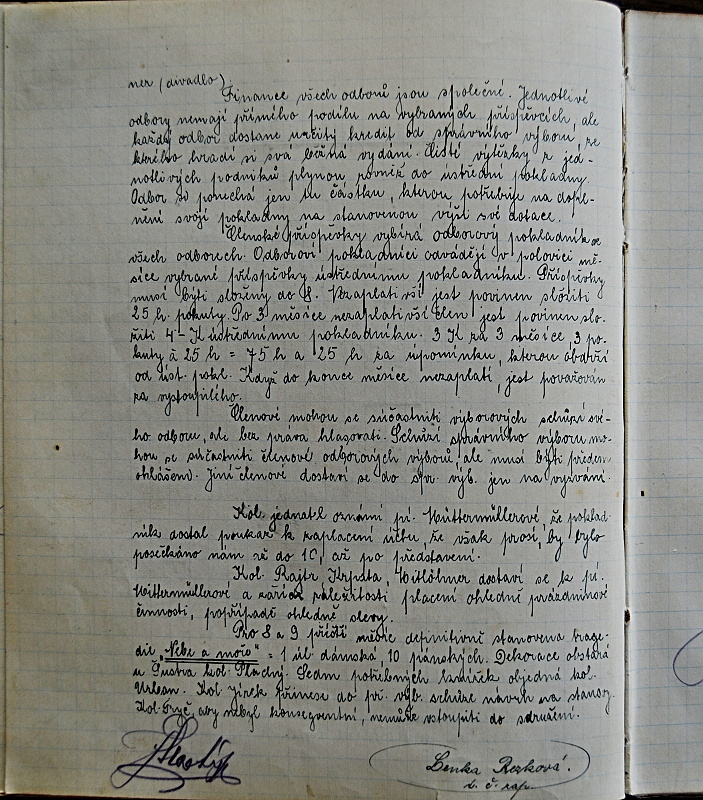 ner (divadlo).
Finance všech odborů jsou společné. Jednotlivé
odbory nemají přímého podílu na vybraných příspěvcích, ale
každý odbor dostane určitý kredit od správního výboru, ze
kterého hradí si svá běžná vydání. Čisté výtěžky z jed-
notlivých podniků plynou rovněž do ústřední pokladny.
Odbor si ponechá jen tu částku, kterou potřebuje na dopl-
nění svojí pokladny na stanovenou výši své dotace.
Členské příspěvky vybírá odborový pokladník ve
všech odborech. Odboroví pokladníci odvádějí v polovici mě-
síce vybrané příspěvky ústřednímu pokladníku. Příspěvky
musí býti složeny do 8. Nezaplativší jest povinen složiti
25 h. pokuty. Po 3 měsíce nezaplativší člen jest povinen slo-
žiti 4 - K ústřednímu pokladníku. 3 K za 3 měsíce, 3 po-
kuty á 25 h = 75 h a 25 h za upomínku, kterou obdrží
od úst. pokl. Když do konce měsíce nezaplatí, jest považován
za vystouplého.
Členové mohou se súčastniti výborových schůzí své-
ho odboru, ale bez práva hlasovati. Schůzí správního výboru mo-
hou se súčastniti členové odborových výborů, ale musí býti předem
ohlášeni. Jiní členové dostaví se do spr. výb. jen na vyzvání.
Kol. jednatel oznámí pí. Hüttermüllerové, že poklad-
ník dostal poukaz k zaplacení účtu, že však prosí, by bylo
posečkáno nám až do 10, až po představení.
Kol. Rajtr, Krpata, dostaví se k pí.
Hüttermüllerové a zařídí záležitosti placení ohledně prázdninové
činnosti, popřípadě ohledně slevy.
Pro 8 a 9 příští měsíc definitivně stanovena trage-
die „Nebe a moře" = 1 úl. dámská, 10 pánských. Dekorace obstará
u Šustra kol. Hladký. Sedm potřebných knížek objedná kol.
Urban. Kol. Jirek přinese do př. výb. schůze návrh na stanovy.
Kol. Fryč, aby nebyl konsequentní, nemůže vstoupiti do sdružení.
Lenka Rezková.
t. č. zap.